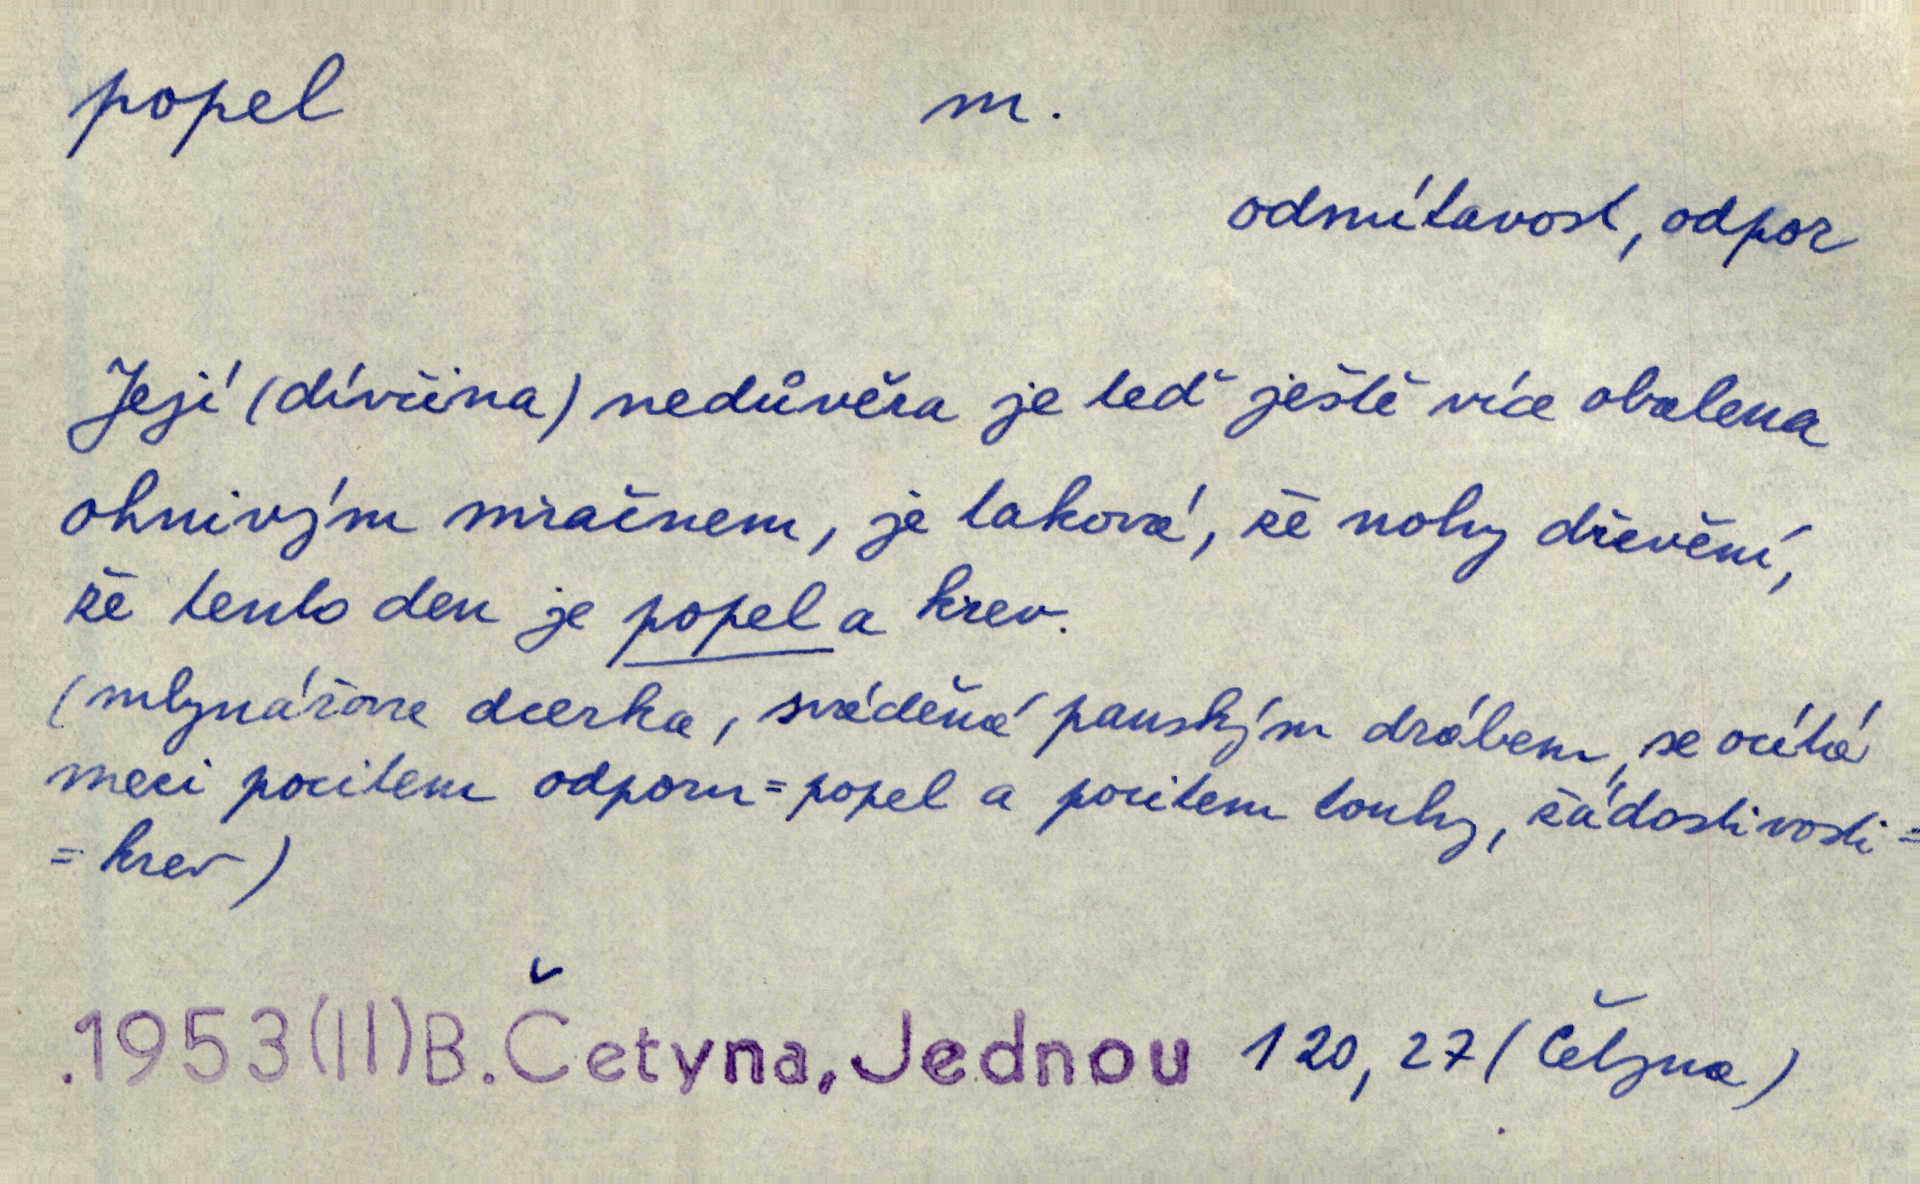 popel m.
odmítavost, odpor
Její (dívčina) nedůvěra je teď ještě více obalena
ohnivým mračnem, je taková, že nohy dřevění,
že tento den je popel a krev.
(mlynářova dcerka, sváděná panským drábem, se ocítá
mezi pocitem odporu = popel a pocitem touhy, žádostivosti =
= krev)
.1953(II)B.Četyna,Jednou 120,27 (Četyna)